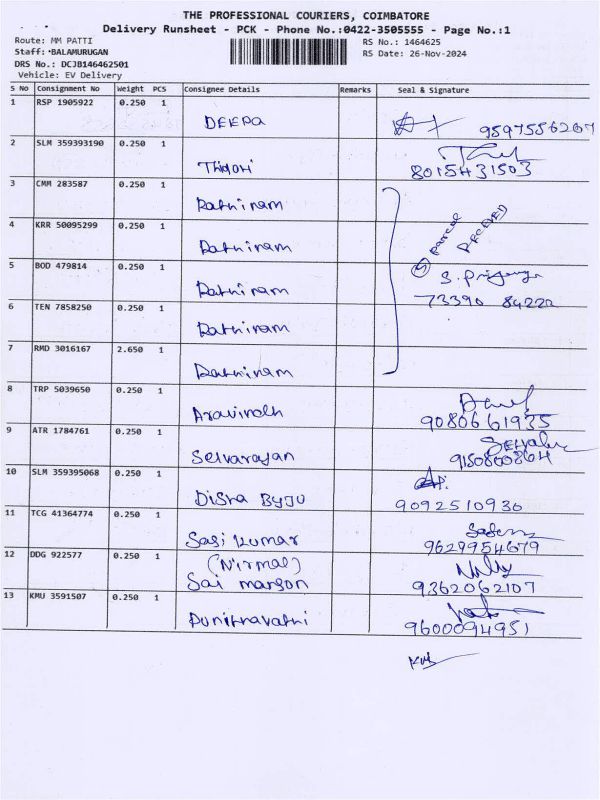 THE PROFESSIONAL COURIERS, COIMBATORE
Delivery Runsheet - PCK - Phone No.:0422-3505555 - Page No.:1
Route: MM PATTI
RS No.: 1464625
Staff: *BALAMURUGAN
RS Date: 26-Nov-2024
DRS No.: DCJB146462501
Vehicle: EV Delivery
S No Consignment No Weight PCS Consignee Details Remarks Seal & Signature
1 RSP 1905922 0.250 1
DEEPA 9597556267
2 SLM 359393190 0.250 1
8015431503
3 CMM 283587 0.250 1
Rathinam
4 KRR 50095299 0.250 1
Rathinam
5 parcel
5 BOD 479814 0.250 1
Rathinam
73390 84222
6 TEN 7858250 0.250 1
Rathinam
7 RMD 3016167 2.650 1
Rathinam
8 TRP 5039650 0.250 1
Aravindh 9080661935
9 ATR 1784761 0.250 1
Selvarayan 9150800864
10 SLM 359395068 0.250 1
Disha Byju 9092510930
11 TCG 41364774 0.250 1
Sasi Kumar 9629954679
12 DDG 922577 0.250 1
(Nirmal)
Sai marson 9362062107
13 KMU 3591507 0.250 1
Punithavathi 9600094951